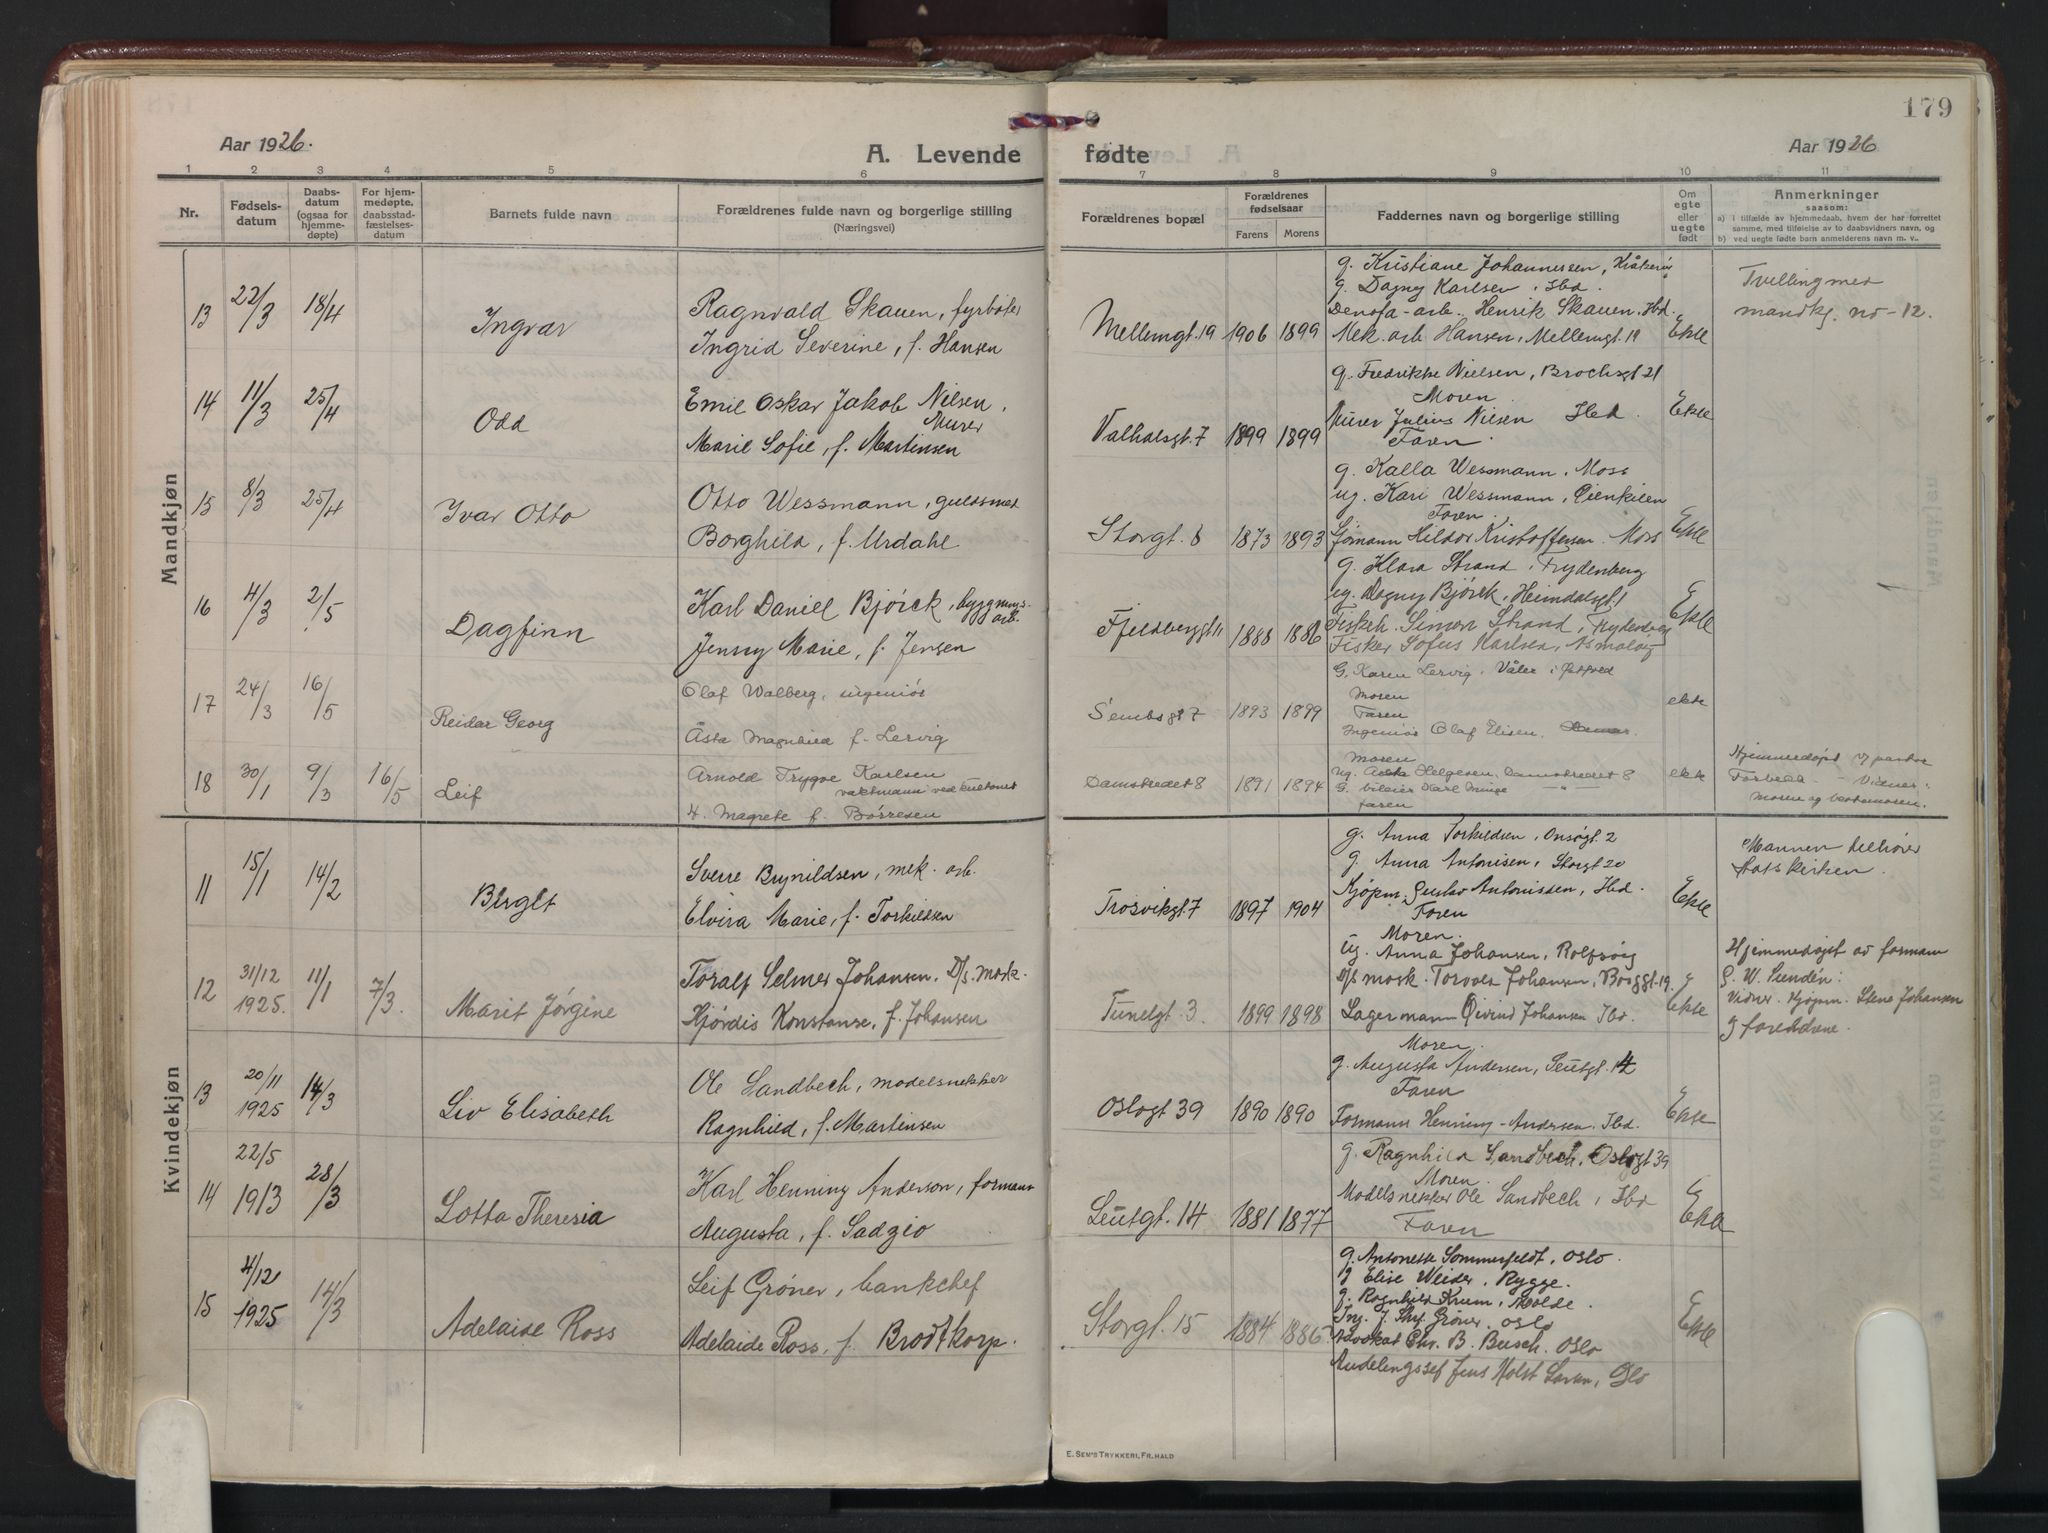 179
Aar 1926.
A. Levende fødte
Aar 1926
1 2 3 4 5 6 7 8 9 10 11
Nr.
Fødselsdatum
Daabsdatum (ogsaa for hjemmedøpte)
For hjemmedøpte, daabsstadfæstelsesdatum
Barnets fulde navn
Forældrenes fulde navn og borgerlige stilling (Næringsvei)
Forældrenes bopæl
Forældrenes fødselsaar
Farens Morens
Faddernes navn og borgerlige stilling
Om egte eller uegte født
Anmerkninger
saasom:
a) i tilfælde av hjemmedaab, hvem der har forrettet samme, med tilføielse av to daabsvidners navn, og
b) ved uegte fødte barn anmelderens navn m. v.
Mandkjøn
13 22/3 18/4 Ingvar
Ragnvald Skauen, fyrbøter
Ingrid Severine, f. Hansen
Mellemgt. 19 1906 1899
g. Kristiane Johannessen, Kråkerøy
g. Dagny Karlsen, Ibd.
Denofa-arb. Henrik Skauen, Ibd.
Mek. arb. Hansen, Mellemgt. 19
Ekte
Tvilling med
mandkj. no-12.
14 11/3 25/4 Odd
Emil Oskar Jakob Nilsen,
Murer
Marie Sofie, f. Martinsen
Valhalsgt. 7 1899 1899
g. Fredrikke Nielsen, Brochsgt 21
Moren.
Murer Julius Nilsen Ibd.
Faren.
Ekte
15 8/3 25/4 Ivar Otto
Otto Wessmann, guldsmed
Borghild, f. Urdahl
Storgt. 8 1873 1893
g. Kalla Wessmann, Moss
ug. Kari Wessmann, Oienkilen
Faren.
Sjømann Hildor Kristoffersen. Moss
Ekte
16 4/3 2/5 Dagfinn
Karl Daniel Bjørck, byggningsarb.
Jenny Marie, f. Jensen
Fjeldberggt 11 1888 1886
g. Klara Strand, Frydenberg
ug. Dagny Bjørck, Heimdalsgt 1
Fiskeh. Simon Strand, Frydenberg
Fisker Sofus Karlsen, Asmaløy
Ekte
17 24/3 16/5 Reidar Georg
Olaf Walberg, ingeniør
Åsta Magnhild f. Lervig
Sembsgt 7 1893 1899
G. Karen Lervig, Våler i Østfold
Moren
Faren
Ingeniør Olaf Elisen,
ekte
18 30/1 9/3 16/5 Leif
Arnold Trygve Karlsen
vaktmann ved
H. Magrete f. Børresen
Damstredet 8 1891 1894
Moren
ug. Aasta Helgesen, Damstredet 8
G. bileier Karl Minge
faren
ekte
Hjemmedøpt
Vidner:
Moren og bestemoren.
Kvindekjøn
11 15/1 14/2 Berglt
Sverre Brynildsen, mek. arb.
Elvira Marie, f. Torkildsen
Trosvikgt. 7 1897 1904
g. Anna Torkildsen, Onsøgt. 2
g. Anna Antonisen, Storgt 20
Kjøpm. Gustav Antonissen, Ibd.
Faren
Ekte
Mannen tilhører
statskirken.
12 31/12 1925. 11/1 7/3. Marit Jørgine
Toralf Selmer Johansen, D/s mask.
Hjørdis Konstanse, f. Johansen
Tunelgt. 3. 1899 1898
Moren.
ug. Anna Johansen, Rolfsøy
D/s mask. Torvald Johansen, Borggt. 19.
Lagermann Øivind Johansen Ibd.
Ekte
Hjemmedøpt av formann
G. W. Sundén:
Vidner. Kjøpm. Stene Johansen
og foreldrene.
13 20/11 1925 14/3 Liv Elisabeth
Ole Sandbech, modelsnekker
Ragnhild, f. Martinsen
Oslogt 39 1890 1890
Moren.
g. Augusta Andersen, Leutgt. 14
Faren
Formann Henning Andersen, Ibd.
Ekte
14 22/5 1913 28/3 Lotta Theresia
Karl Henning Anderson, formann
Augusta, f. Sadzio
Leutgt. 14 1881 1877
g. Ragnhild Sandbech, Oslogt 39
Moren.
Modelsnekker Ole Sandbech, Ibd
Faren
Ekte
15 4/12 1925 14/3 Adelaide Ross
Leif Grøner, bankchef
Adelaide Ross, f. Brodtkorp.
Storgt. 15 1884 1886
g. Antonette Sommerfeldt, Oslo.
g Elise Weider, Rygge.
g. Ragnhild Krum, Molde.
Ing. J. Grøner, Oslo
Advokat Chr. B. Busch. Oslo
Avdelingssef Jens Holst Oslo
Ekte
E. SEM'S TRYKKERI, FR.HALD